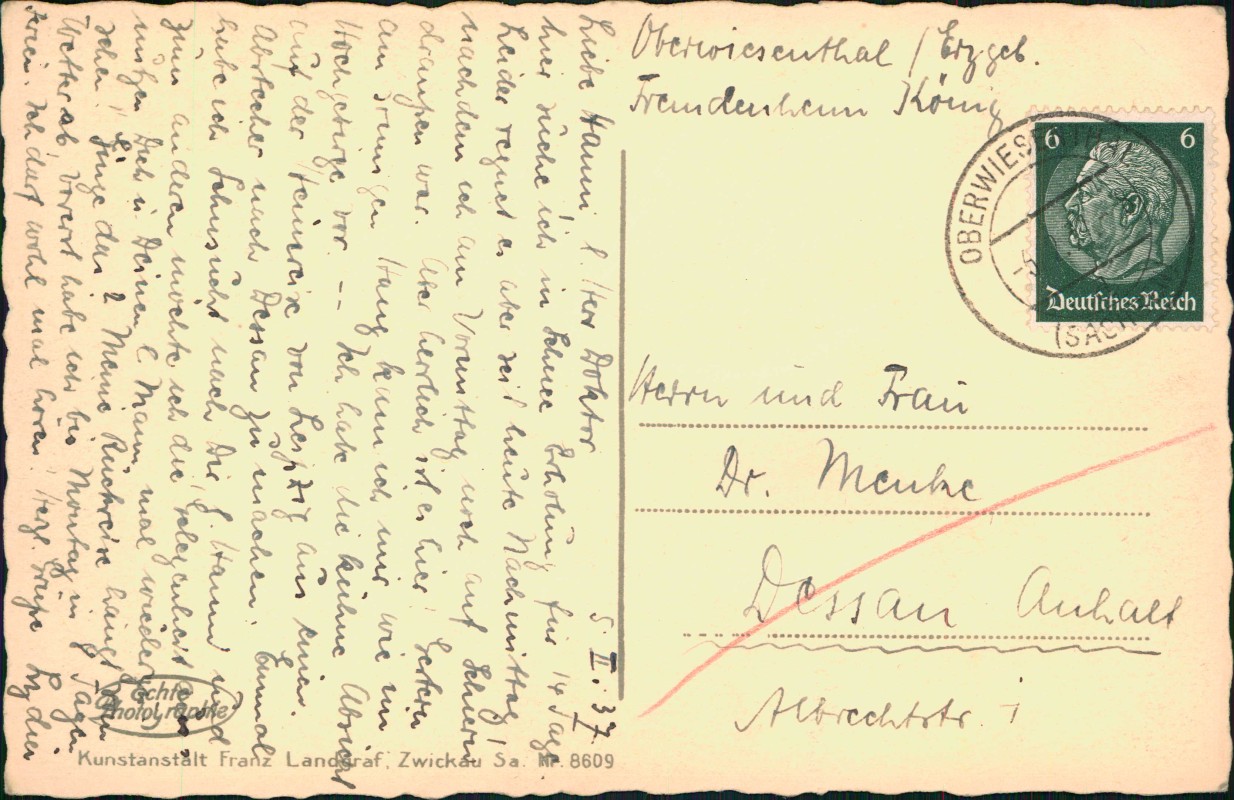 Oberwiesenthal / Erzgeb.
Fremdenheim König
6 6
Deutsches Reich
OBERWIESENTHAL
(SACHS)
Herrn und Frau
Dr. Menke
Dessau Anhalt
Albrechtstr. 1
5. II. 37.
Liebe Hanni, l. Herr Doktor
hier suche ich in Schnee Erholung für 14 Tage
Leider regnet es aber seit heute Nachmittag,
nachdem ich am Vormittag noch auf Schiern
draußen war. Aber herrlich ist es hier! Gestern
am sonnigen Hang kam ich mir wie im
Hochgebirge vor. -- Ich habe die kühne Absicht
auf der Heimreise von Leipzig aus einen
Abstecher nach Dessau zu machen. Einmal
habe ich Sehnsucht nach Dir, l. Hanni, und
zum anderen möchte ich die Gelegenheit
nützen Dich u Deinen l. Mann mal wieder
sehen! Ginge das? Meine Rückreise hängt vom
Wetter ab, vorerst habe ich bis Montag in 8 Tagen
Ferien. Ich darf wohl mal hören. Herzl. Grüße
Echte Photographie
Kunstanstalt Franz Landgraf, Zwickau Sa. Nr. 8609